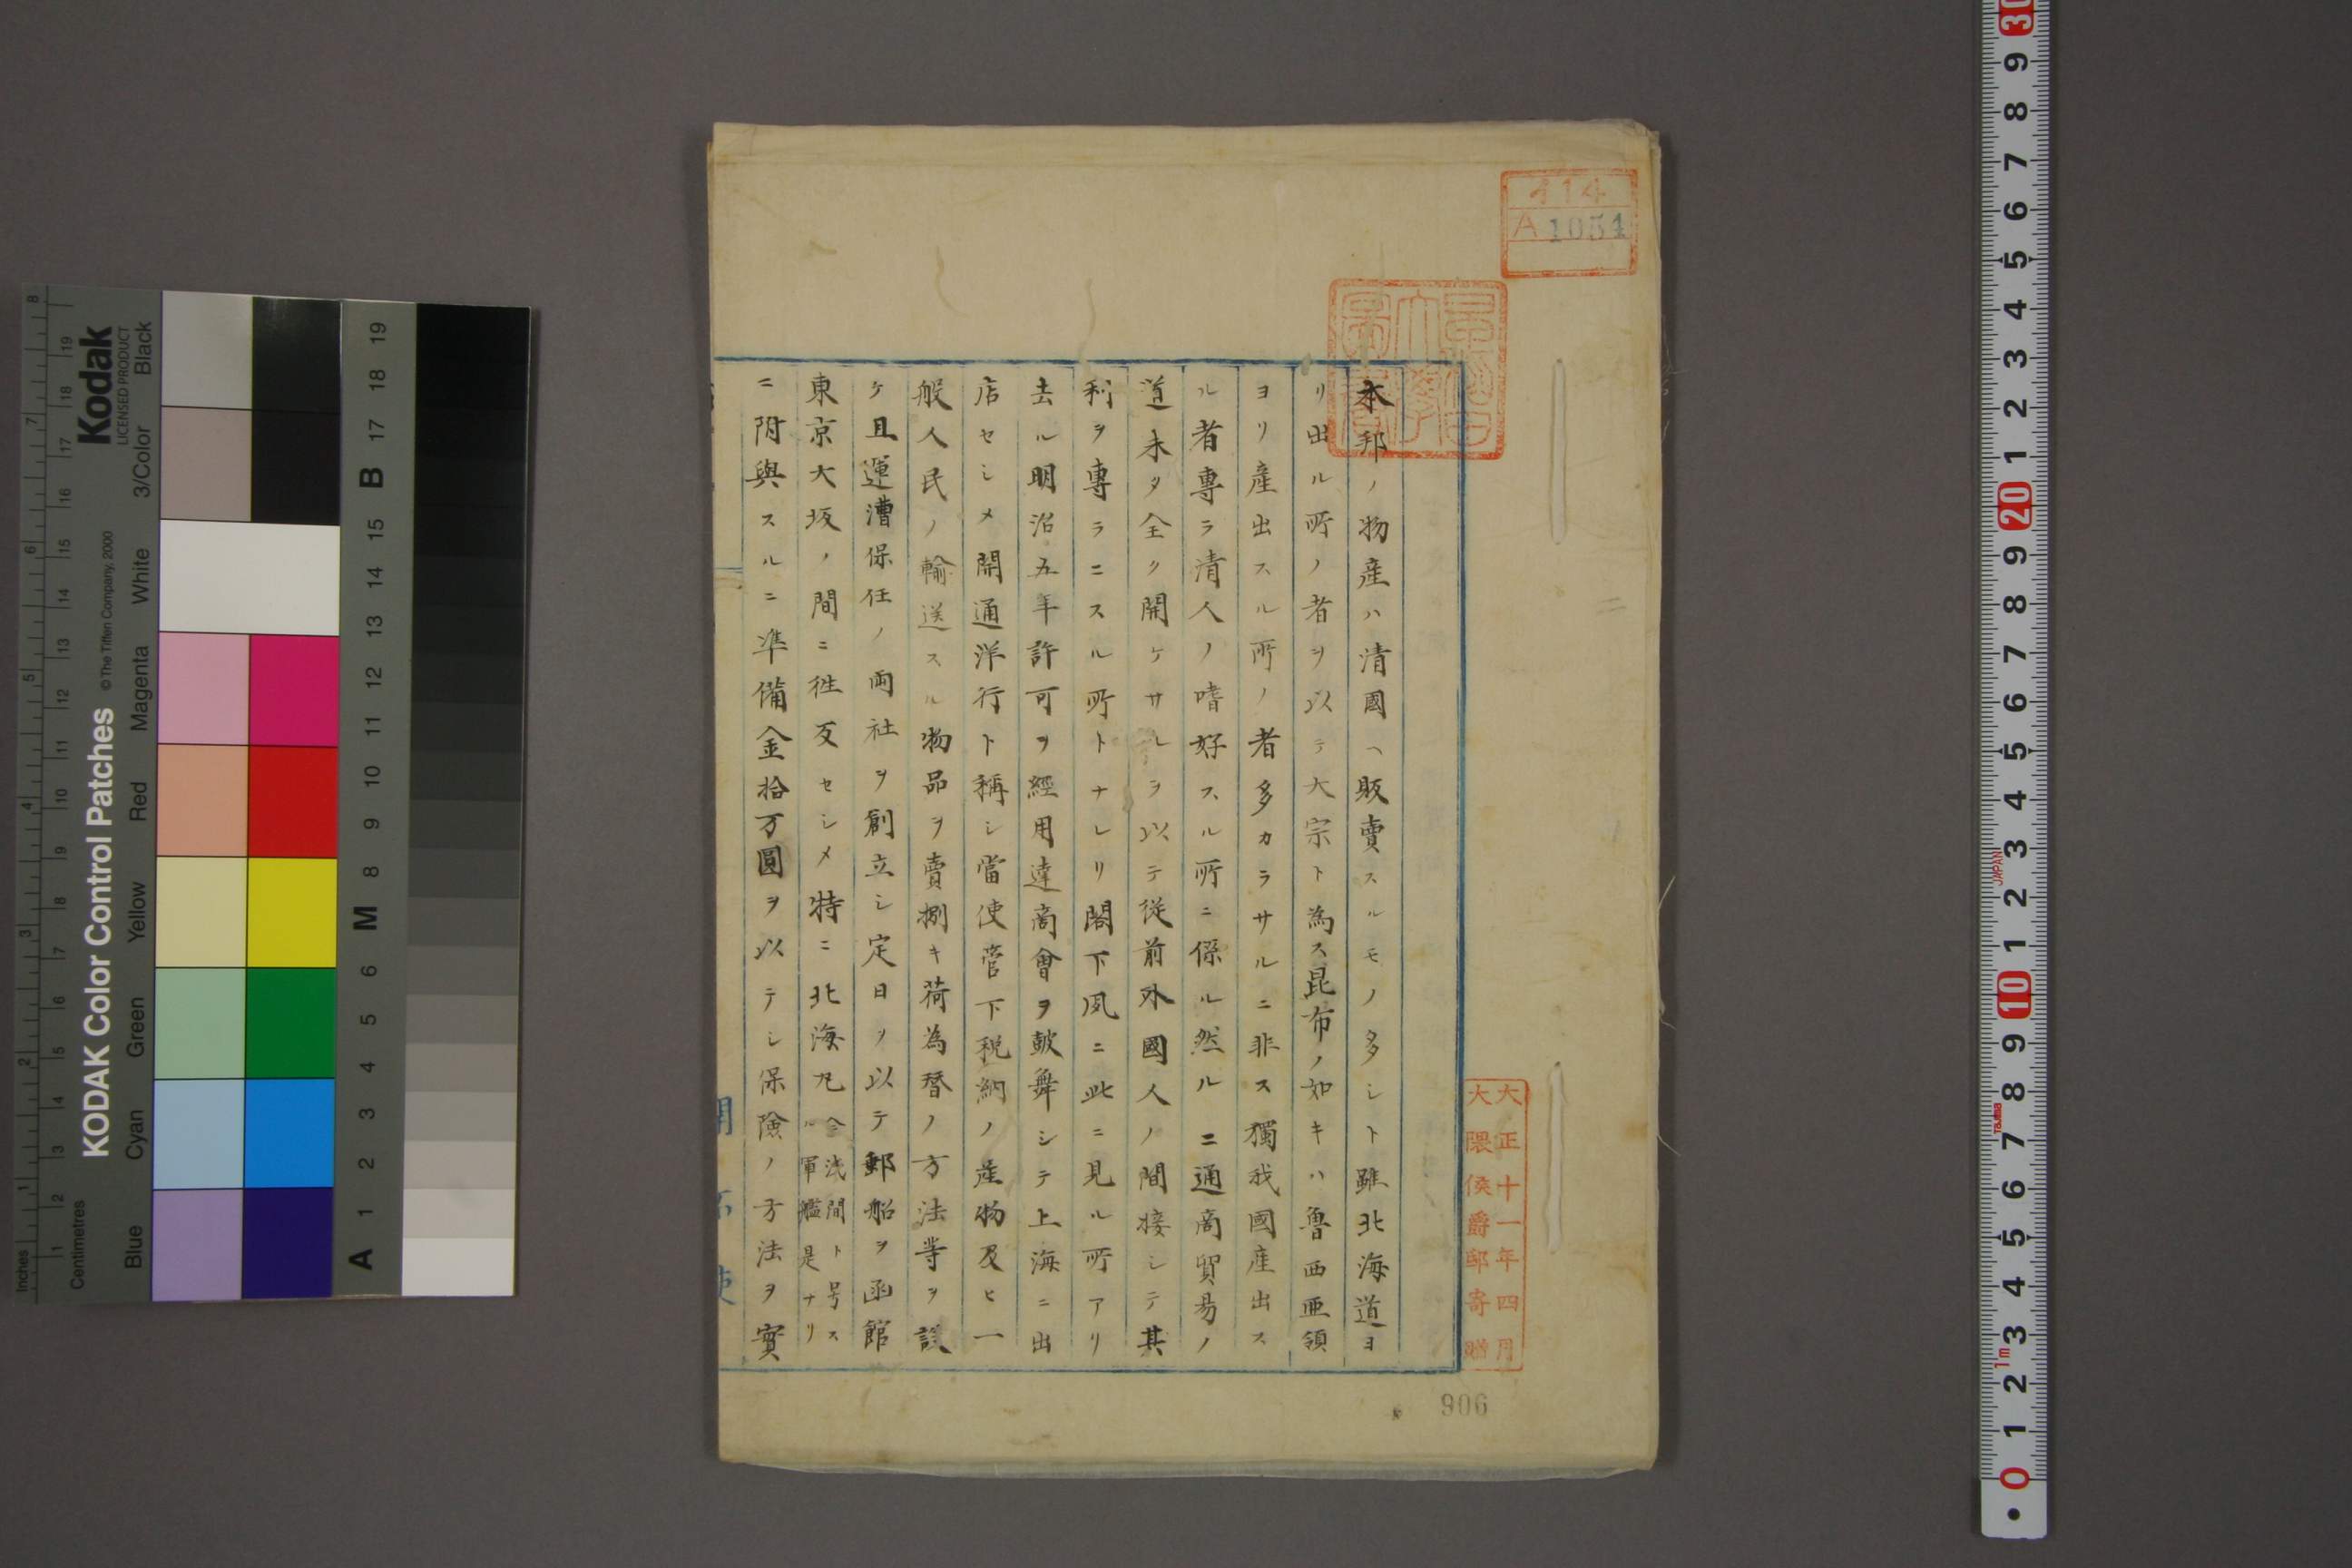 本邦ノ物産ハ清國ヘ販賣スルモノ多シト雖北海道ヨ
リ出ル所ノ者ヲ以テ大宗ト為ス昆布ノ如キハ魯西亜領
ヨリ産出スル所ノ者多カラサルニ非ス獨我國産出ス
ル者專ラ清人ノ嗜好スル所ニ係ル然ルニ通商貿易ノ
道未タ全ク開ケサルヲ以テ從前外國人ノ間接シテ其
利ヲ專ラニスル所トナレリ閣下夙ニ此ニ見ル所アリ
去ル明治五年許可ヲ經用達商會ヲ皷舞シテ上海ニ出
店セシメ開通洋行ト稱シ當使管下税納ノ産物及ヒ一
般人民ノ輸送スル物品ヲ賣捌キ荷為替ノ方法等ヲ設
ケ且運漕保任ノ両社ヲ創立シ定日ヲ以テ郵船ヲ函館
東京大坂ノ間ニ徃反セシメ特ニ北海丸今浅間ト号ス
ル軍艦是ナリ
ニ附與スルニ準備金拾万圓ヲ以テシ保険ノ方法ヲ實
414
A 1054
早稲田大學圖書
大正十一年四月
大隈侯爵邸寄贈
906
開拓使
Kodak
LICENSED PRODUCT
KODAK Color Control Patches
© The Tiffen Company, 2000
Inches
Centimetres
Blue
Cyan
Green
Yellow
Red
Magenta
White
3/Color
Black
1 2 3 4 5 6 7 8
1 2 3 4 5 6 7 8 9 10 11 12 13 14 15 16 17 18 19
A 1 2 3 4 5 6 M 8 9 10 11 12 13 14 15 B 17 18 19
30
9 8 7 6 5 4 3 2 1
20
9 8 7 6 5 4 3 2 1
10
9 8 7 6 5 4 3 2 1 0
JAPAN
TaJIma
1m